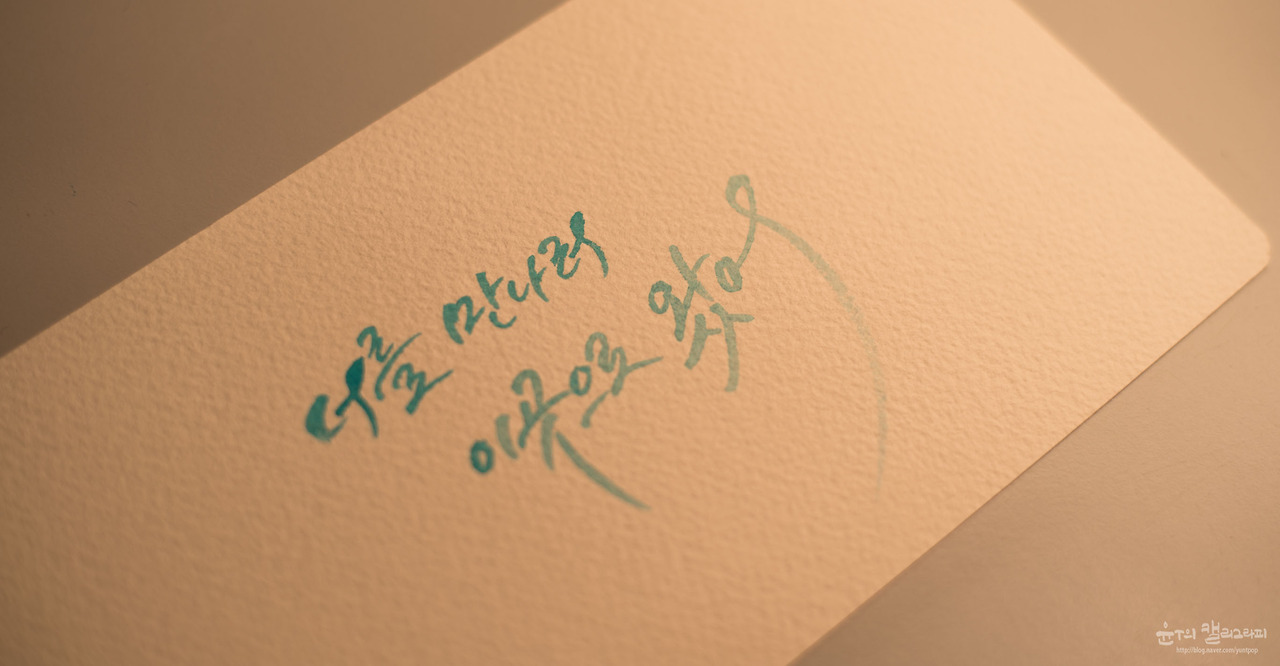 너를 만나러
이곳으로 왔어
윤T의 캘리그라피
http://blog.naver.com/yuntpop